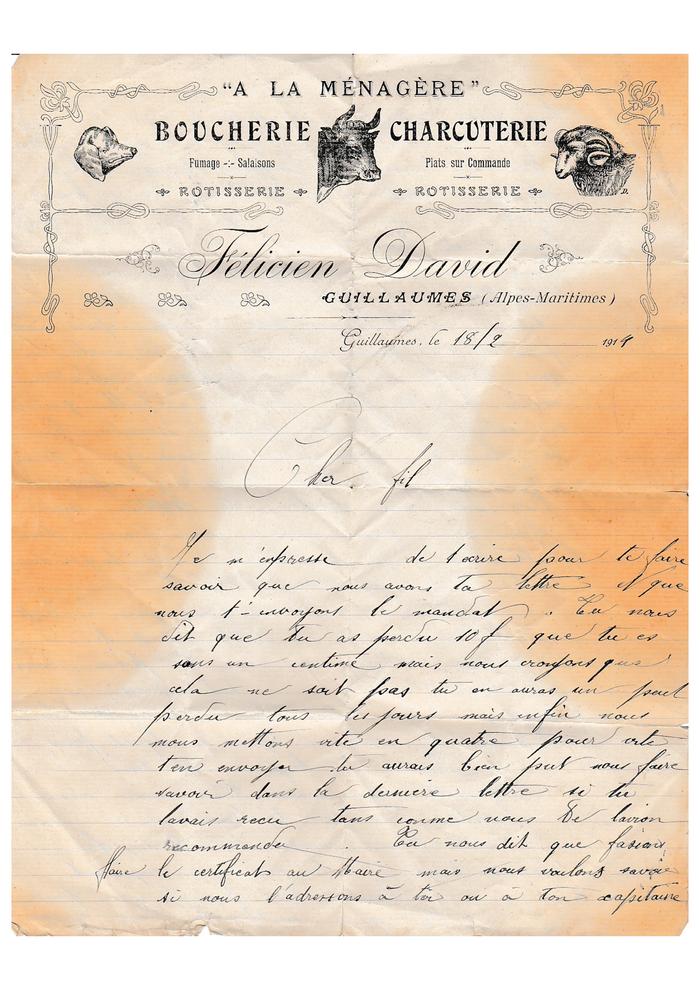 "A LA MÉNAGÈRE"
BOUCHERIE CHARCUTERIE
Fumage -:- Salaisons Plats sur Commande
ROTISSERIE ROTISSERIE
Félicien David
GUILLAUMES (Alpes-Maritimes)
Guillaumes, le 18/2 1914
Cher fil
Je m'empresse de t'ecrire pour te faire
savoir que nous avons ta lettre et que
nous t'envoyons le mandat. Tu nous
dit que tu as perdu 10 f que tu es
sans un centime mais nous croyons que
cela ne soit pas tu en auras un peut
perdu tous les jours mais enfin nous
nous mettons vite en quatre pour vite
t'en envoyer tu aurais bien put nous faire
savoir dans la derniere lettre si tu
lavais recu tans comme nous te lavion
recommander. Tu nous dit que fasions
faire le certificat au Maire mais nous voulons savoir
si nous l'adressons à toi ou à ton capitaine